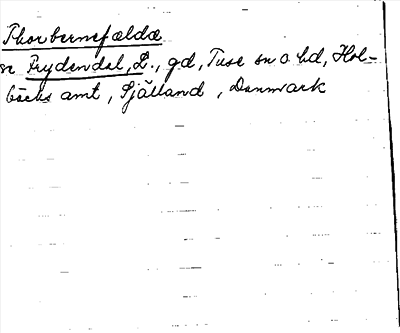 Thorbernefældæ
se Frydendal, L., gd, Tuse sn o hd, Hol-
bäcks amt, Själland, Danmark